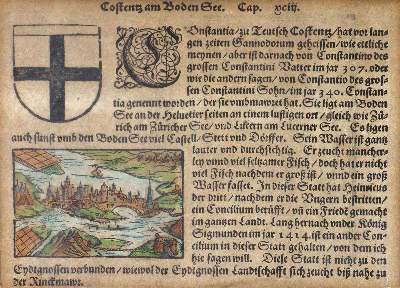 Costentz am Boden See. Cap. xciij.
COnstantia/zu Teutsch Costentz/hat vor lan-
gen zeiten Gannodorum geheissen/wie ettliche
meynen/aber ist darnach von Constantino des
grossen Constantini Vatter im jar 307. oder
wie die andern sagen/von Constantio des gros-
sen Constantini Sohn/im jar 340. Constan-
tia genennt worden/der sie vmbmawret hat. Sie ligt am Boden
See an der Helvetier seiten an einem lustigen ort/gleich wie Zü-
rich am Züricher See/vnd Lucern am Lucerner See. Es ligen
auch sunst vmb den Boden See viel Castell/Stett vnd Dörffer. Sein Wasser ist gantz
lauter vnd durchsichtig. Er zeucht mancher-
ley vnnd viel seltzamer Fisch/doch hat er nicht
viel Fisch nachdem er groß ist/vnnd ein groß
Wasser fasset. In dieser Statt hat Heinricus
der dritt/nachdem er die Vngern bestritten/
ein Concilium berüfft/vñ ein Friede gemacht
im gantzen Landt. Lang hernach vnder König
Sigmunden im jar 1414. ist ein ander Con-
cilium in dieser Statt gehalten/von dem ich
hie sagen will. Diese Statt ist nicht zu den
Eydtgnossen verbunden/wiewol der Eydtgnossen Landtschafft sich zeucht biß nahe zu
der Rinckmawr.